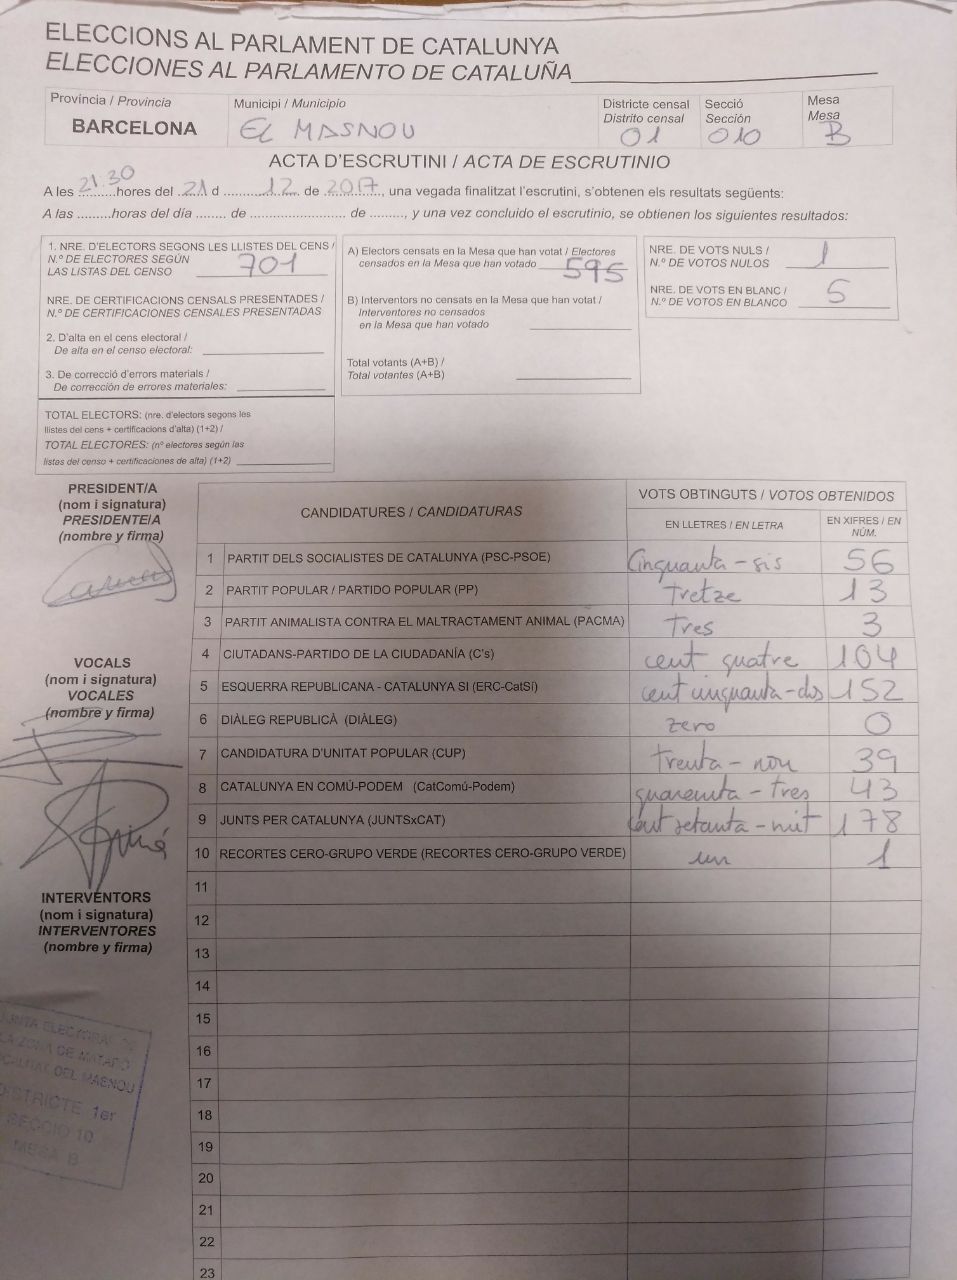 ELECCIONS AL PARLAMENT DE CATALUNYA
ELECCIONES AL PARLAMENTO DE CATALUÑA
Província / Provincia
BARCELONA
Municipi / Municipio
EL MASNOU
Districte censal
Distrito censal
01
Secció
Sección
010
Mesa
Mesa
B
ACTA D'ESCRUTINI / ACTA DE ESCRUTINIO
A les 21:30 hores del 21 d 12 de 2017, una vegada finalitzat l'escrutini, s'obtenen els resultats següents:
A las .........horas del día ........ de ........................ de ........., y una vez concluido el escrutinio, se obtienen los siguientes resultados:
1. NRE. D'ELECTORS SEGONS LES LLISTES DEL CENS /
N.º DE ELECTORES SEGÚN
LAS LISTAS DEL CENSO 701
NRE. DE CERTIFICACIONS CENSALS PRESENTADES /
N.º DE CERTIFICACIONES CENSALES PRESENTADAS
2. D'alta en el cens electoral /
De alta en el censo electoral:
3. De correcció d'errors materials /
De corrección de errores materiales:
TOTAL ELECTORS: (nre. d'electors segons les
llistes del cens + certificacions d'alta) (1+2) /
TOTAL ELECTORES: (nº electores según las
listas del censo + certificaciones de alta) (1+2)
A) Electors censats en la Mesa que han votat / Electores
censados en la Mesa que han votado 595
B) Interventors no censats en la Mesa que han votat /
Interventores no censados
en la Mesa que han votado
Total votants (A+B) /
Total votantes (A+B)
NRE. DE VOTS NULS /
N.º DE VOTOS NULOS 1
NRE. DE VOTS EN BLANC /
N.º DE VOTOS EN BLANCO 5
PRESIDENT/A
(nom i signatura)
PRESIDENTE/A
(nombre y firma)
VOCALS
(nom i signatura)
VOCALES
(nombre y firma)
INTERVENTORS
(nom i signatura)
INTERVENTORES
(nombre y firma)
JUNTA ELECTORAL DE
LA ZONA DE MATARÓ
LOCALITAT DEL MASNOU
DISTRICTE 1er
SECCIO 10
MESA B
CANDIDATURES / CANDIDATURAS
VOTS OBTINGUTS / VOTOS OBTENIDOS
EN LLETRES / EN LETRA
EN XIFRES / EN
NÚM.
1 PARTIT DELS SOCIALISTES DE CATALUNYA (PSC-PSOE) Cinquanta-sis 56
2 PARTIT POPULAR / PARTIDO POPULAR (PP) Tretze 13
3 PARTIT ANIMALISTA CONTRA EL MALTRACTAMENT ANIMAL (PACMA) Tres 3
4 CIUTADANS-PARTIDO DE LA CIUDADANÍA (C's) cent quatre 104
5 ESQUERRA REPUBLICANA - CATALUNYA SI (ERC-CatSí) cent cinquanta-dos 152
6 DIÀLEG REPUBLICÀ (DIÀLEG) zero 0
7 CANDIDATURA D'UNITAT POPULAR (CUP) trenta-nou 39
8 CATALUNYA EN COMÚ-PODEM (CatComú-Podem) quarenta-tres 43
9 JUNTS PER CATALUNYA (JUNTSxCAT) Cent setanta-vuit 178
10 RECORTES CERO-GRUPO VERDE (RECORTES CERO-GRUPO VERDE) un 1
11
12
13
14
15
16
17
18
19
20
21
22
23